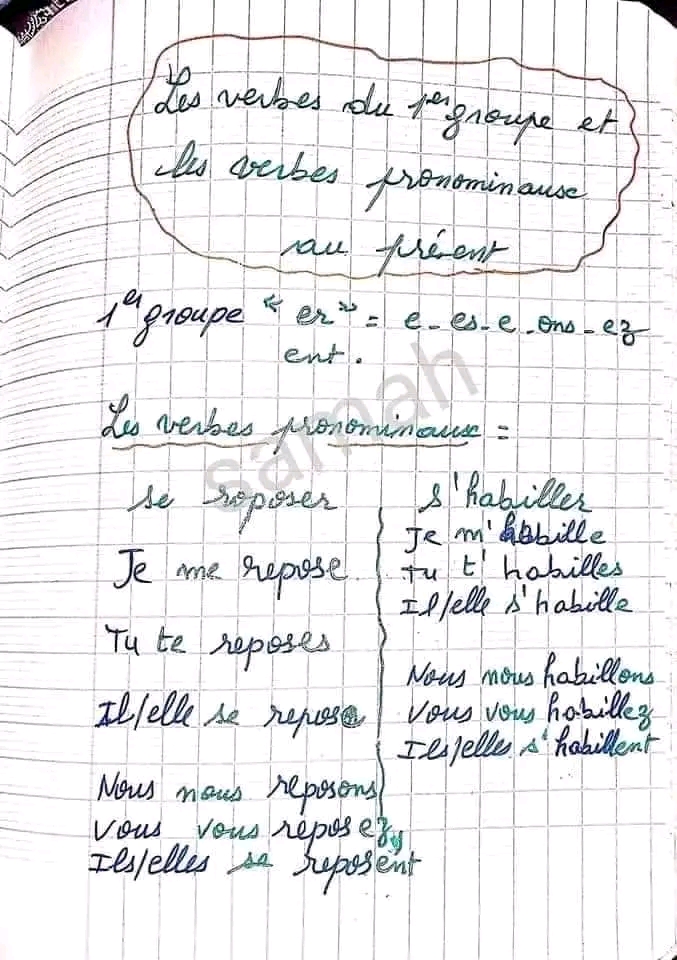 Les verbes du 1er groupe et
les verbes pronominaux
au présent
1er groupe "er" = e - es - e - ons - ez
ent.
Les verbes pronominaux =
se reposer
Je me repose
Tu te reposes
Il/elle se repose
Nous nous reposons
Vous vous reposez,
Ils/elles se reposent
s'habiller
Je m'habille
Tu t'habilles
Il/elle s'habille
Nous nous habillons
Vous vous habillez
Ils/elles s'habillent
samah